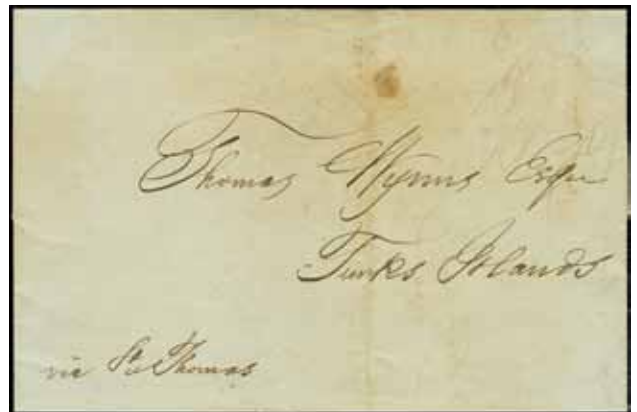 Thomas Wynns Esqre
Turks Islands
via St Thomas